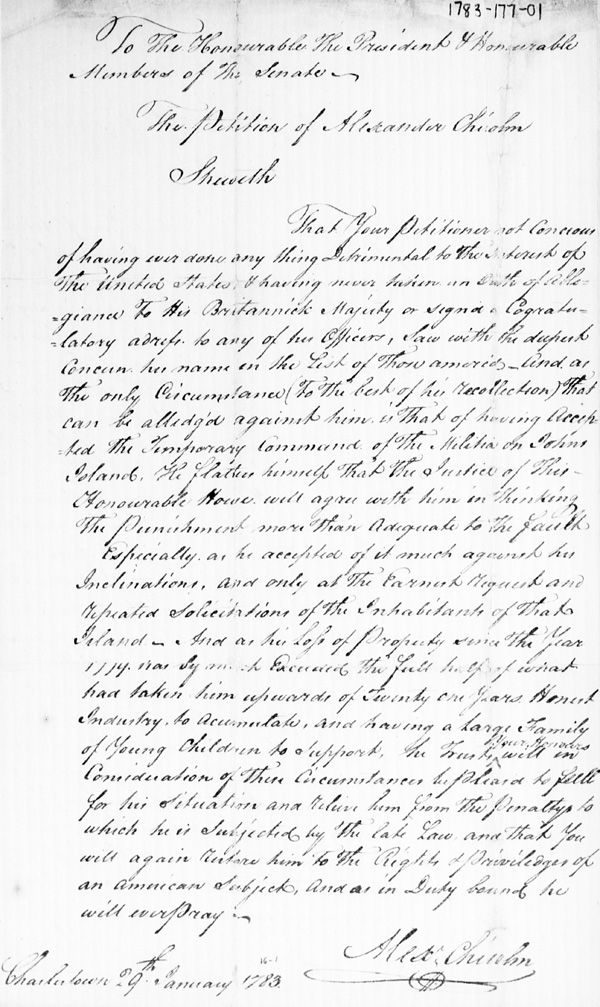 1783-177-01
To The Honourable The President & Honourable
Members of the Senate
The Petition of Alexander Chisolm
Sheweth
That Your Petitioner not Concious
of having ever done any thing Detrimental to the Interest of
The United States & having never taken an Oath of Alle-
=giance To His Britannick Majesty or signd a Cogratu-
=latory adress to any of his Officers, Saw with the deepest
Concern his name in the List of Those amercid — And as
The only Circumstance (To the best of his recollection) That
can be alledg'd against him is That of having Accep-
=ted the Temporary Command of the Militia on Johns
Island, He flatters himself That the Justice of This
Honourable House will agree with him in Thinking
The Punishment more Than Adequate to the fault
Especially as he accepted of it much against his
Inclinations, and only at The Earnest request and
repeated Solicitations of the Inhabitants of That
Island — And as his Loss of Property since the Year
1779 has by much Exceeded the full half of what
had taken him upwards of Twenty one Years Honest
Industry to Acumulate, and having a Large Family
of Young Children to Support, He Trusts Your Honours will in
Consideration of These Circumstances be pleasd to feell
for his Situation and releive him from The Penaltys to
which he is Subjected by The late Law and that You
will again restore him to The Rights & Priviledges of
an American Subject, And as in Duty bound he
will ever Pray
Alexr Chisolm
Charlestown 29th January 1783